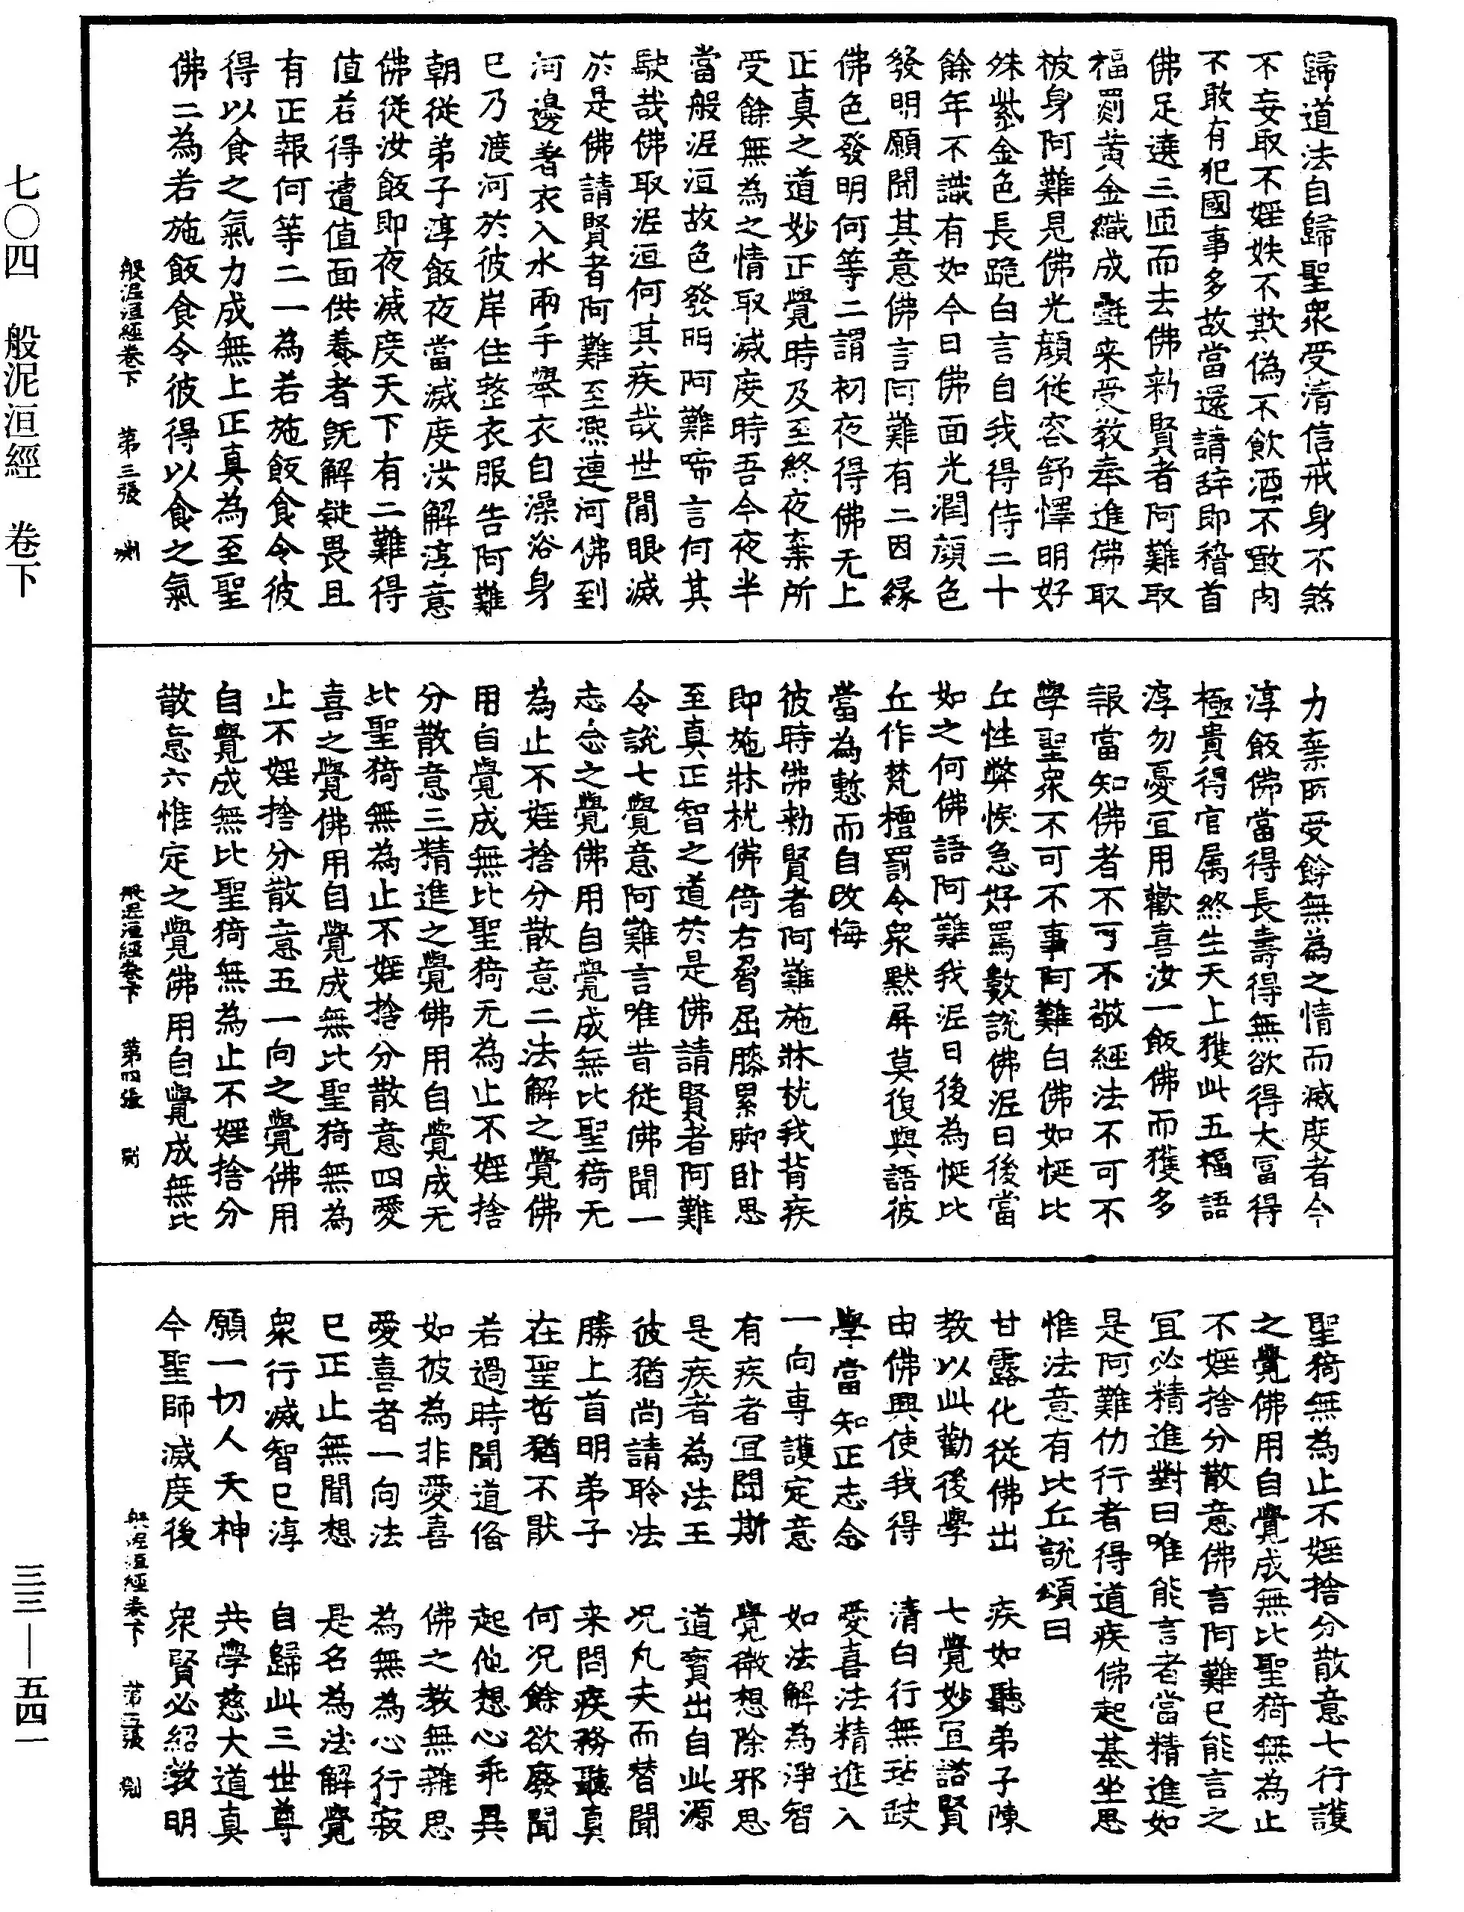 七〇四 般泥洹經 卷下
歸道法自歸聖眾受清信戒身不煞
不妄取不婬妷不欺偽不飲酒不敢肉
不敢有犯國事多故當還請辞即稽首
佛足遶三匝而去佛勑賢者阿難取
福罽黃金織成㲲来受教奉進佛取
被身阿難見佛光顏従容舒懌明好
殊紫金色長跪白言自我得侍二十
餘年不識有如今日佛面光潤顏色
發明願聞其意佛言阿難有二因緣
佛色發明何等二謂初夜得佛无上
正真之道妙正覺時及至終夜棄所
受餘無為之情取滅度時吾今夜半
當般泥洹故色發明阿難啼言何其
駛哉佛取泥洹何其疾哉世閒眼滅
於是佛請賢者阿難至熈連河佛到
河邊著衣入水兩手舉衣自澡浴身
已乃渡河於彼岸住整衣服告阿難
朝從弟子淳飯夜當滅度汝解淳意
佛從汝飯即夜滅度天下有二難得
值若得遭值面供養者旣解疑畏且
有正報何等二一為若施飯食令彼
得以食之氣力成無上正真為至聖
佛二為若施飯食令彼得以食之氣
般泥洹經卷下 第三張
力棄所受餘無為之情而滅度者今
淳飯佛當得長壽得無欲得大富得
極貴得官属終生天上獲此五福語
淳勿憂宜用歡喜汝一飯佛而獲多
報當知佛者不可不敬經法不可不
學聖眾不可不事阿難白佛如㤆比
丘性弊悷急好罵數說佛泥曰後當
如之何佛語阿難我泥曰後為㤆比
丘作梵檀罰令眾默屏莫復與語彼
當為慙而自改悔
彼時佛勑賢者阿難施牀枕我背疾
即施牀枕佛倚右脅屈膝累脚卧思
至真正智之道於是佛請賢者阿難
令說七覺意阿難言唯昔從佛聞一
志念之覺佛用自覺成無比聖猗无
為止不婬捨分散意二法解之覺佛
用自覺成無比聖猗无為止不婬捨
分散意三精進之覺佛用自覺成无
比聖猗無為止不婬捨分散意四愛
喜之覺佛用自覺成無比聖猗無為
止不婬捨分散意五一向之覺佛用
自覺成無比聖猗無為止不婬捨分
散意六惟定之覺佛用自覺成無比
般泥洹經卷下 第四張
聖猗無為止不婬捨分散意七行護
之覺佛用自覺成無比聖猗無為止
不婬捨分散意佛言阿難已能言之
宜必精進對曰唯能言者當精進如
是阿難仂行者得道疾佛起基坐思
惟法意有比丘說頌曰
甘露化從佛出 疾如聽弟子陳
教以此勸後學 七覺妙宜諮賢
由佛興使我得 清白行無玷缺
學當知正志念 愛喜法精進入
一向專護定意 如法解為淨智
有疾者宜問斯 覺微想除邪思
是疾者為法王 道寶出自此源
彼猶尚請聆法 況凡夫而替聞
勝上首明弟子 来問疾務聽真
在聖哲猶不猒 何況餘欲廢聞
若過時聞道俻 起他想心乖異
如彼為非愛喜 佛之教無雜思
愛喜者一向法 為無為心行寂
已正止無聞想 是名為法解覺
眾行滅智已淳 自歸此三世尊
願一切人天神 共學慈大道真
今聖師滅度後 眾賢必紹教明
般泥洹經卷下 第五張
三三—五四一